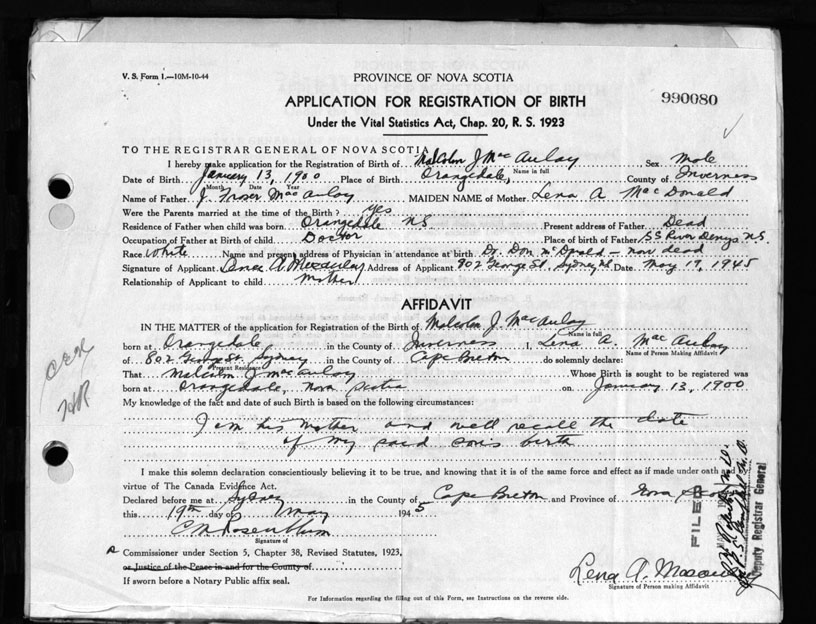 V. S. Form 1.—10M-10-44
PROVINCE OF NOVA SCOTIA
APPLICATION FOR REGISTRATION OF BIRTH
990080
Under the Vital Statistics Act, Chap. 20, R. S. 1923
TO THE REGISTRAR GENERAL OF NOVA SCOTIA
I hereby make application for the Registration of Birth of Malcolm J. MacAulay Sex Male
Name in full
Date of Birth January 13, 1900 Place of Birth Orangedale, County of Inverness
Month Date Year
Name of Father J. Fraser MacAulay MAIDEN NAME of Mother Lena A MacDonald
Were the Parents married at the time of the Birth? yes
Residence of Father when child was born Orangedale N.S. Present address of Father Dead
Occupation of Father at Birth of child Doctor Place of birth of Father S.S. River Denys N.S.
Race White Name and present address of Physician in attendance at birth Dr. Don McDonald - now dead
Signature of Applicant Lena A. Macaulay Address of Applicant 802 George St, Sydney NS Date May 19, 1945
Relationship of Applicant to child mother
AFFIDAVIT
IN THE MATTER of the application for Registration of the Birth of Malcolm J. MacAulay
Name in full
born at Orangedale in the County of Inverness I, Lena A. MacAulay
Name of Person Making Affidavit
of 802 George St. Sydney in the County of Cape Breton do solemnly declare:
Present Residence
That Malcolm J MacAulay Whose Birth is sought to be registered was
born at Orangedale, Nova Scotia on January 13, 1900
My knowledge of the fact and date of such Birth is based on the following circumstances:
I am his mother and well recall the date
of my said son's birth
I make this solemn declaration conscientiously believing it to be true, and knowing that it is of the same force and effect as if made under oath and by
virtue of The Canada Evidence Act.
Declared before me at Sydney in the County of Cape Breton and Province of Nova Scotia
this 19th day of May 1945
C M Rosenblum
Signature of
A Commissioner under Section 5, Chapter 38, Revised Statutes, 1923,
or Justice of the Peace in and for the County of
If sworn before a Notary Public affix seal.
Lena A. Macaulay
Signature of Person making Affidavit
For Information regarding the filling out of this Form, see Instructions on the reverse side.
FILED
Deputy Registrar General